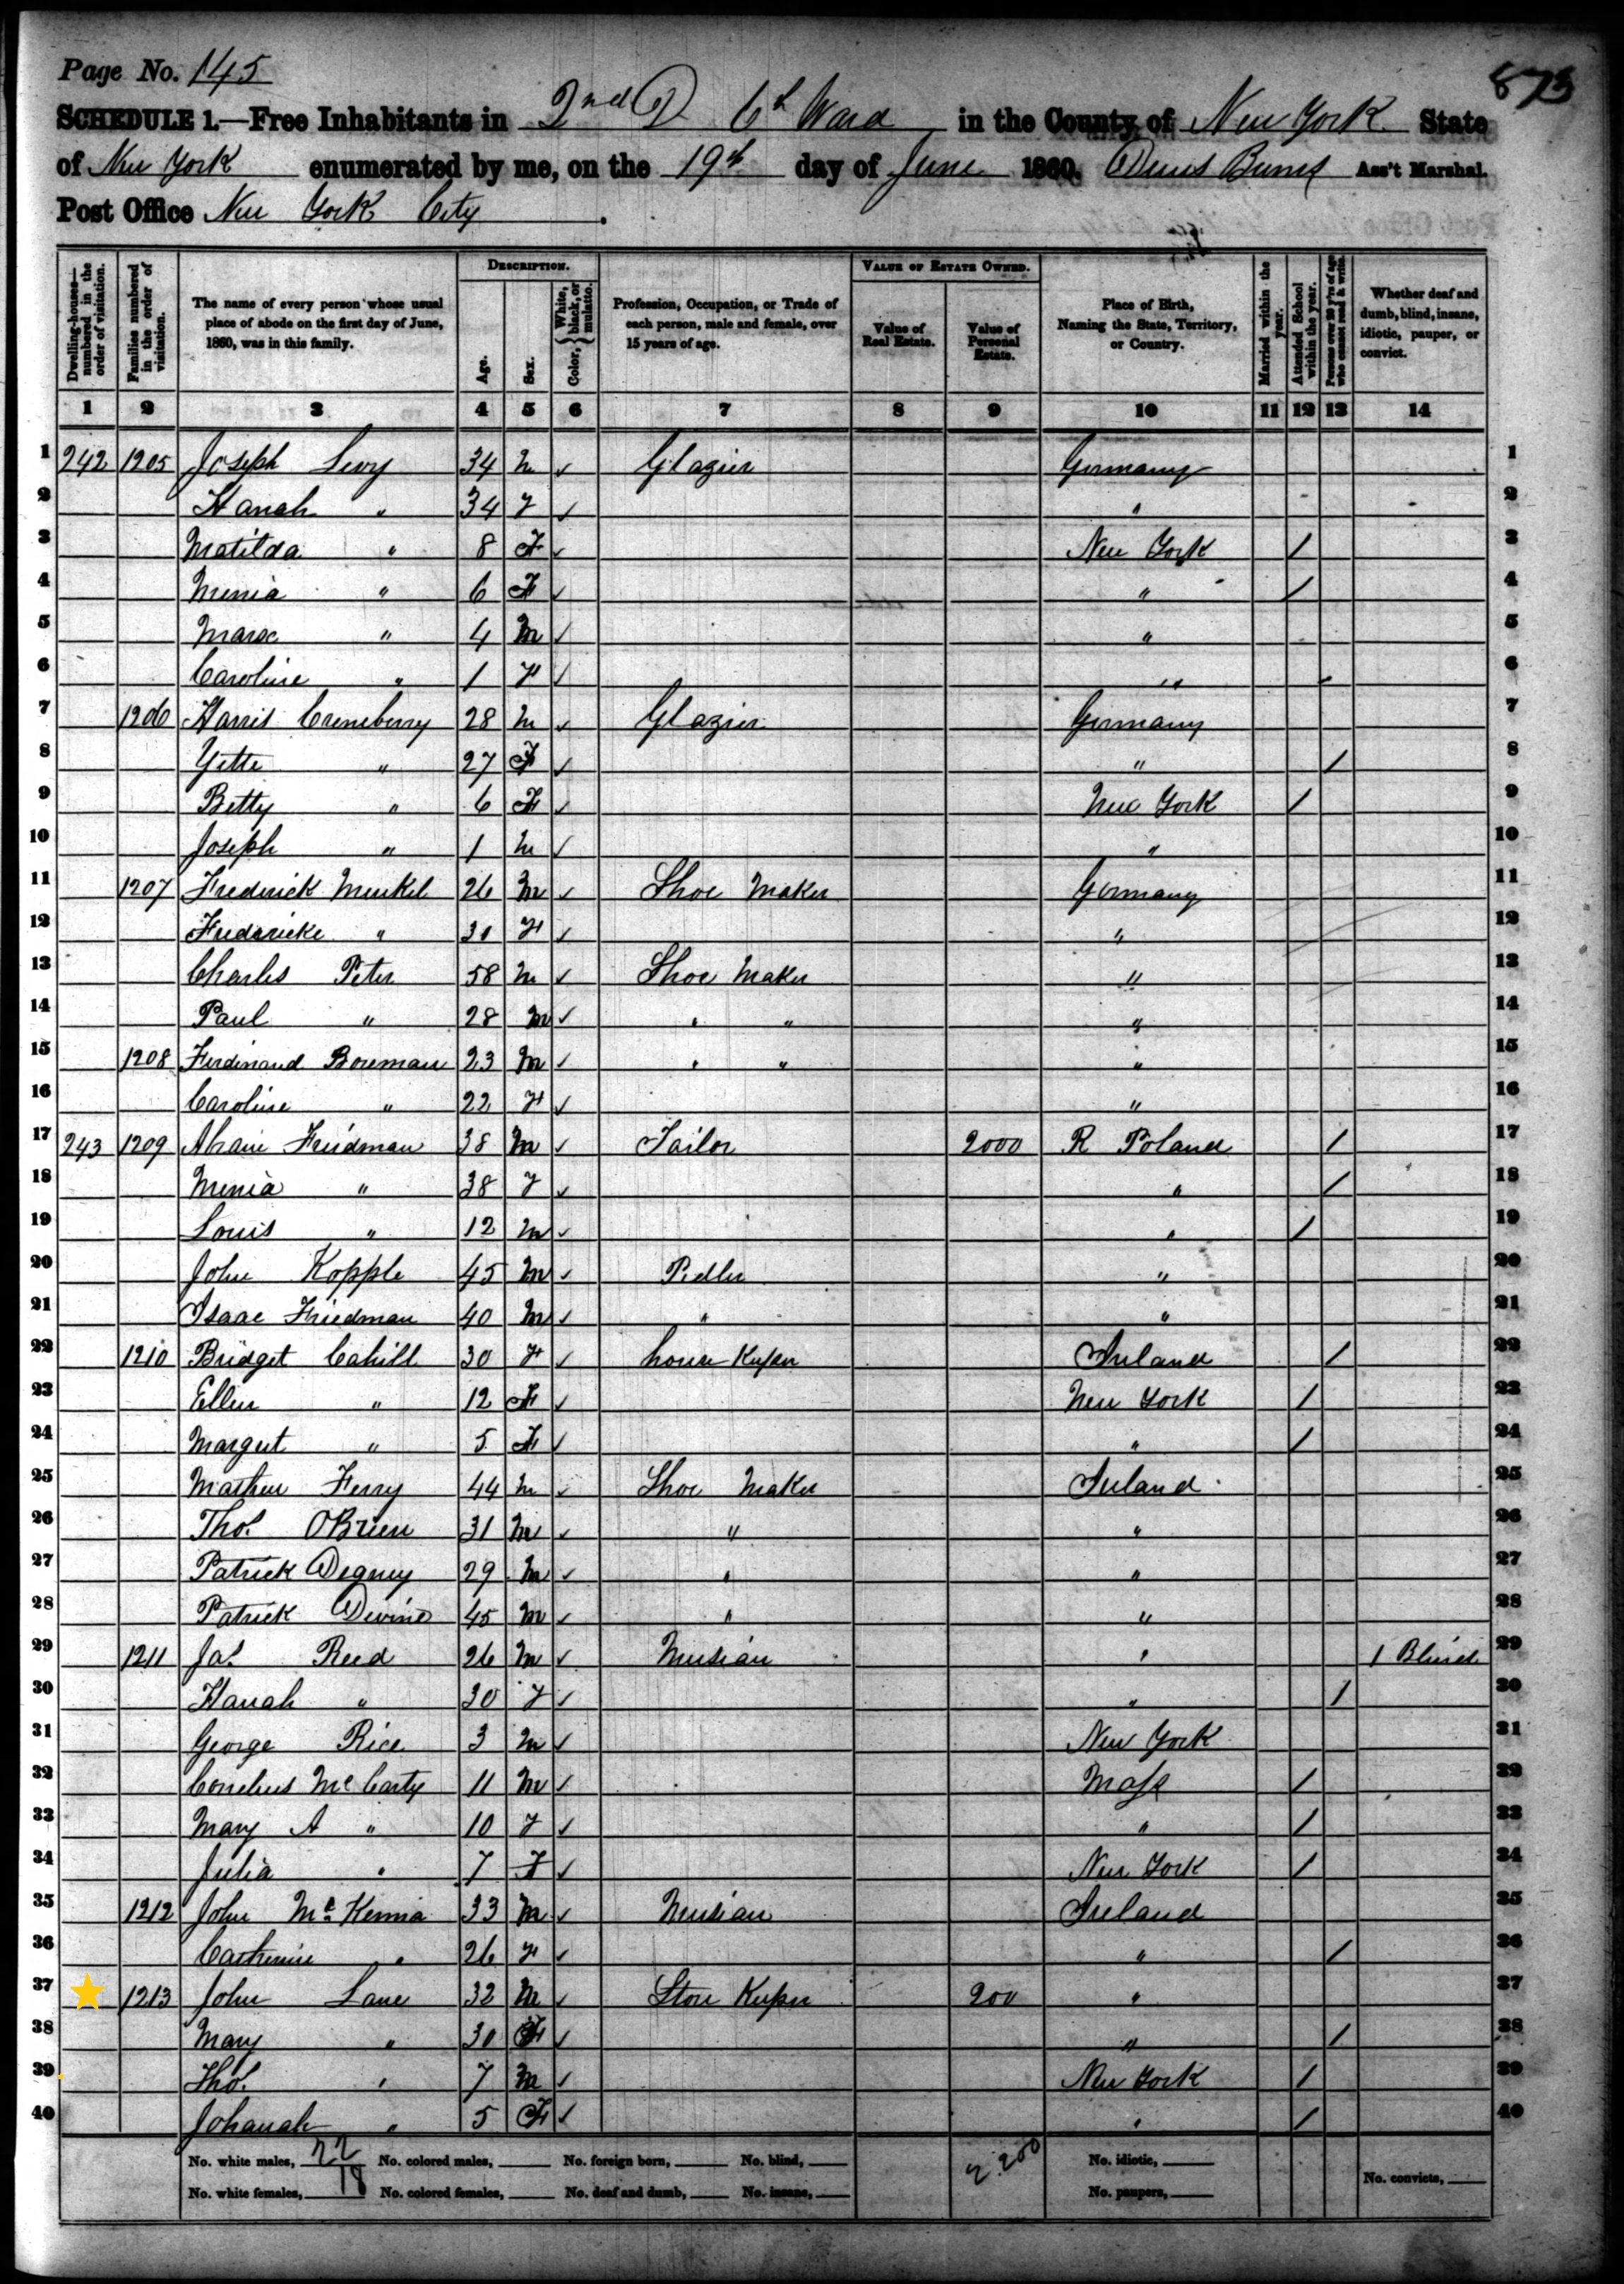 Page No. 145
873
SCHEDULE 1.—Free Inhabitants in 2nd D 6th Ward in the County of New York State
of New York enumerated by me, on the 19th day of June 1860. Ass't Marshal.
Post Office New York City.
DESCRIPTION. VALUE OF ESTATE OWNED.
Dwelling-houses—numbered in the order of visitation. Families numbered in the order of visitation. The name of every person whose usual place of abode on the first day of June, 1860, was in this family. Age. Sex. Color, {White, black, or mulatto. Profession, Occupation, or Trade of each person, male and female, over 15 years of age. Value of Real Estate. Value of Personal Estate. Place of Birth, Naming the State, Territory, or Country. Married within the year. Attended School within the year. Persons over 20 y'rs of age who cannot read & write. Whether deaf and dumb, blind, insane, idiotic, pauper, or convict.
1 2 3 4 5 6 7 8 9 10 11 12 13 14
1 242 1205 Joseph Levy 34 M ✓ Glazier Germany 1
2 Hanah " 34 F ✓ " 2
3 Matilda " 8 F ✓ New York / 3
4 Menia " 6 F ✓ " / 4
5 " 4 M ✓ " 5
6 Caroline " 1 F ✓ " 6
7 1206 Harris 28 M ✓ Glazier Germany 7
8 Yette " 27 F ✓ " / 8
9 Betty " 6 F ✓ New York / 9
10 Joseph " 1 M ✓ " 10
11 1207 Frederick Menkel 26 M ✓ Shoe Maker Germany 11
12 Fredericke " 30 F ✓ " 12
13 Charles Peter 58 M ✓ Shoe Maker " 13
14 Paul " 28 M ✓ " " " 14
15 1208 Ferdinand Boreman 23 M ✓ " " " 15
16 Caroline " 22 F ✓ " 16
17 243 1209 Friedman 38 M ✓ Tailor 2000 R Poland / 17
18 Menia " 38 F ✓ " / 18
19 Louis " 12 M ✓ " / 19
20 John Kopple 45 M ✓ Pedler " 20
21 Isaac Friedman 40 M ✓ " " 21
22 1210 Bridget Cahill 30 F ✓ house Keeper Ireland / 22
23 Ellen " 12 F ✓ New York / 23
24 Margret " 5 F ✓ " / 24
25 Mathew Ferry 44 M ✓ Shoe Maker Ireland 25
26 Thos. OBrien 31 M ✓ " " 26
27 Patrick Degney 29 M ✓ " " 27
28 Patrick Devine 45 M ✓ " " 28
29 1211 Jas. Reed 26 M ✓ Musian " / Blind 29
30 Hanah " 30 F ✓ " / 30
31 George Rice 3 M ✓ New York 31
32 Cornelius McCarty 11 M ✓ Mass / 32
33 Mary A " 10 F ✓ " / 33
34 Julia " 7 F ✓ New York / 34
35 1212 John McKenna 33 M ✓ Musian Ireland 35
36 Catherine " 26 F ✓ " / 36
37 1213 John Lane 32 M ✓ Store Keeper 200 " 37
38 Mary " 30 F ✓ " / 38
39 Thos. " 7 M ✓ New York / 39
40 Johanah " 5 F ✓ " / 40
No. white males, 22 No. colored males, No. foreign born, No. blind, 2.200 No. idiotic,
No. white females, 18 No. colored females, No. deaf and dumb, No. insane, No. paupers, No. convicts,